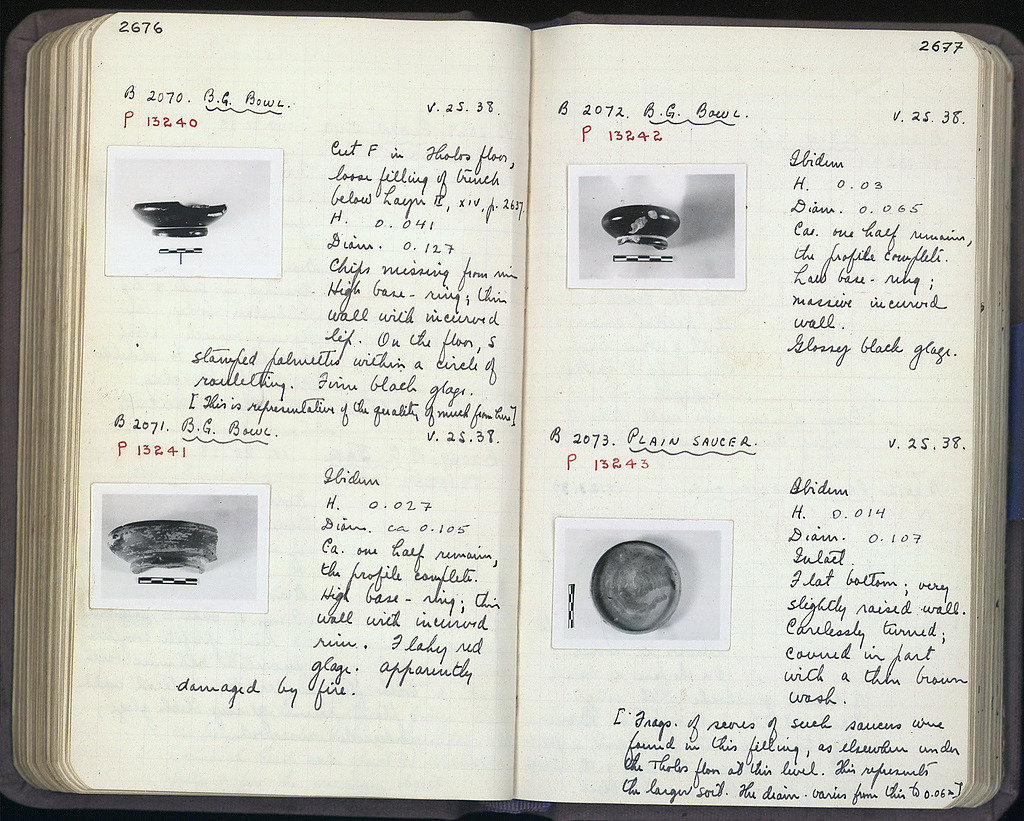 2676
B 2070. B.G. Bowl. V. 25. 38.
P 13240
Cut F in Tholos floor,
loose filling of trench
below Layer II, XIV, p. 2637.
H. 0.041
Diam. 0.127
Chips missing from rim
High base-ring; thin
wall with incurved
lip. On the floor, 5
stamped palmettes within a circle of
rouletting. Firm black glaze.
[This is representative of the quality of much from here]
B 2071. B.G. Bowl. V. 25. 38.
P 13241
Ibidem
H. 0.027
Diam. ca 0.105
Ca. one half remains,
the profile complete.
High base-ring; thin
wall with incurved
rim. Flaky red
glaze. apparently
damaged by fire.
2677
B 2072. B.G. Bowl. V. 25. 38.
P 13242
Ibidem
H. 0.03
Diam. 0.065
Ca. one half remains,
the profile complete.
Low base-ring;
massive incurved
wall.
Glossy black glaze.
B 2073. Plain saucer. V. 25. 38.
P 13243
Ibidem
H. 0.014
Diam. 0.107
Intact.
Flat bottom; very
slightly raised wall.
Carelessly turned;
covered in part
with a thin brown
wash.
[Frags. of scores of such saucers were
found in this filling, as elsewhere under
the Tholos floor at this level. This represents
the larger sort. The diam. varies from this to 0.06m]